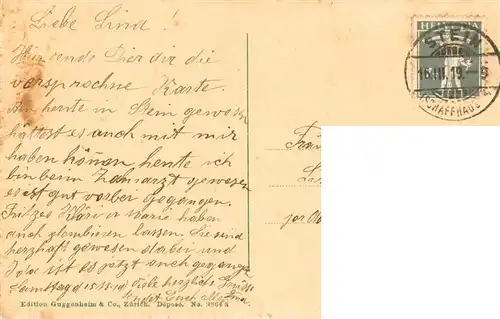 Liebe Lina!
Hier sende Dir die
versprochne Karte.
Bin heute in Stein gewesen
hättest es auch mit mir
haben können heute ich
bin beim Zahnarzt gewesen
es ist gut vorbei gegangen.
Fritzes Kläri u Marie haben
auch plombiren lassen. Sie sind
herzhaft gewesen dabei und
ist es jetzt auch gegangen
Samstag d 15.3.19 Viele herzlich Grüsse
sendet Euch Alle
Edition Guggenheim & Co., Zürich. Déposé. No. 8864
HELVETIA
STEIN
16.III.19.-8
(SCHAFFHAUS